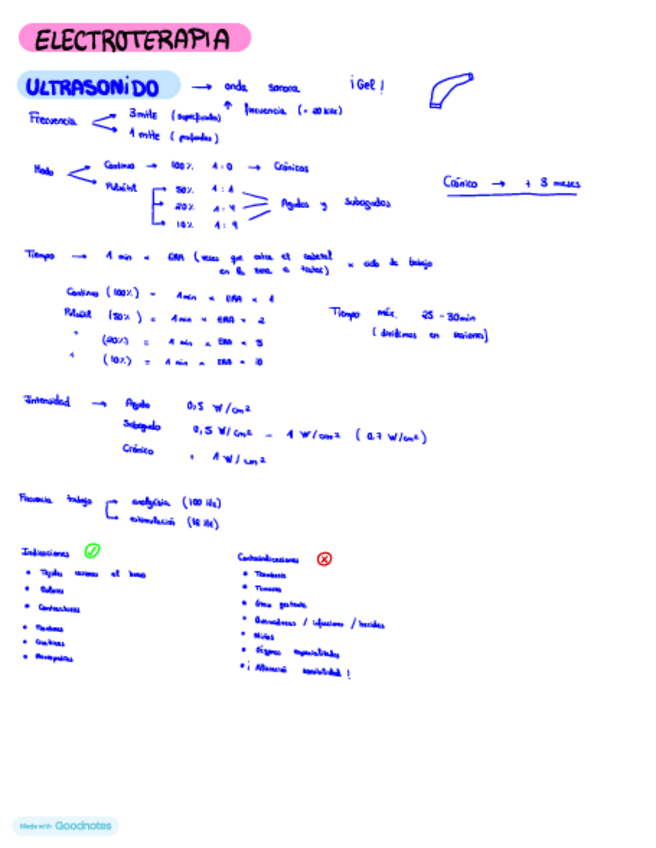 ELECTROTERAPIA
ULTRASONIDO → onda sonora ¡Gel!
↑ frecuencia (= 20 kHz)
Frecuencia
3 mHz (superficiales)
1 mHz (profundas)
Modo
Continuo → 100% 1:0 → Crónicos
Pulsátil
50% 1:1
20% 1:4
10% 1:9
Agudos y Subagudos
Crónico → + 3 meses
Tiempo → 1 min × ERA (veces que entra el cabezal
en la zona a tratar) × ciclo de trabajo
Continuo (100%) = 1 min × ERA × 1
Pulsátil (50%) = 1 min × ERA × 2
" (20%) = 1 min × ERA × 5
" (10%) = 1 min × ERA × 10
Tiempo máx. 25 - 30 min
(dividimos en sesiones)
Intensidad → Agudo 0,5 W/cm2
Subagudo 0,5 W/cm2 - 1 W/cm2 (0.7 W/cm2)
Crónico 1 W/cm2
Frecuencia trabajo
analgésia (100 Hz)
estimulación (16 Hz)
Indicaciones
• Tejidos cercanos al hueso
• Dolores
• Contracturas
• Cicatrices
Contraindicaciones
• Trombosis
• Tumores
• Útero gestante
• Quemaduras / infecciones / heridas
• Niños
• Órganos especializados
• ¡Alteración sensibilidad!
Made with Goodnotes